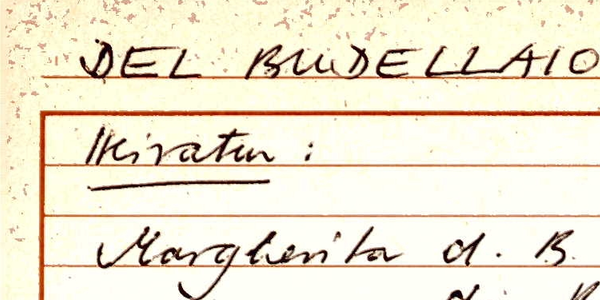 DEL BUDELLAIO
Heiraten :
Margherita d. B.